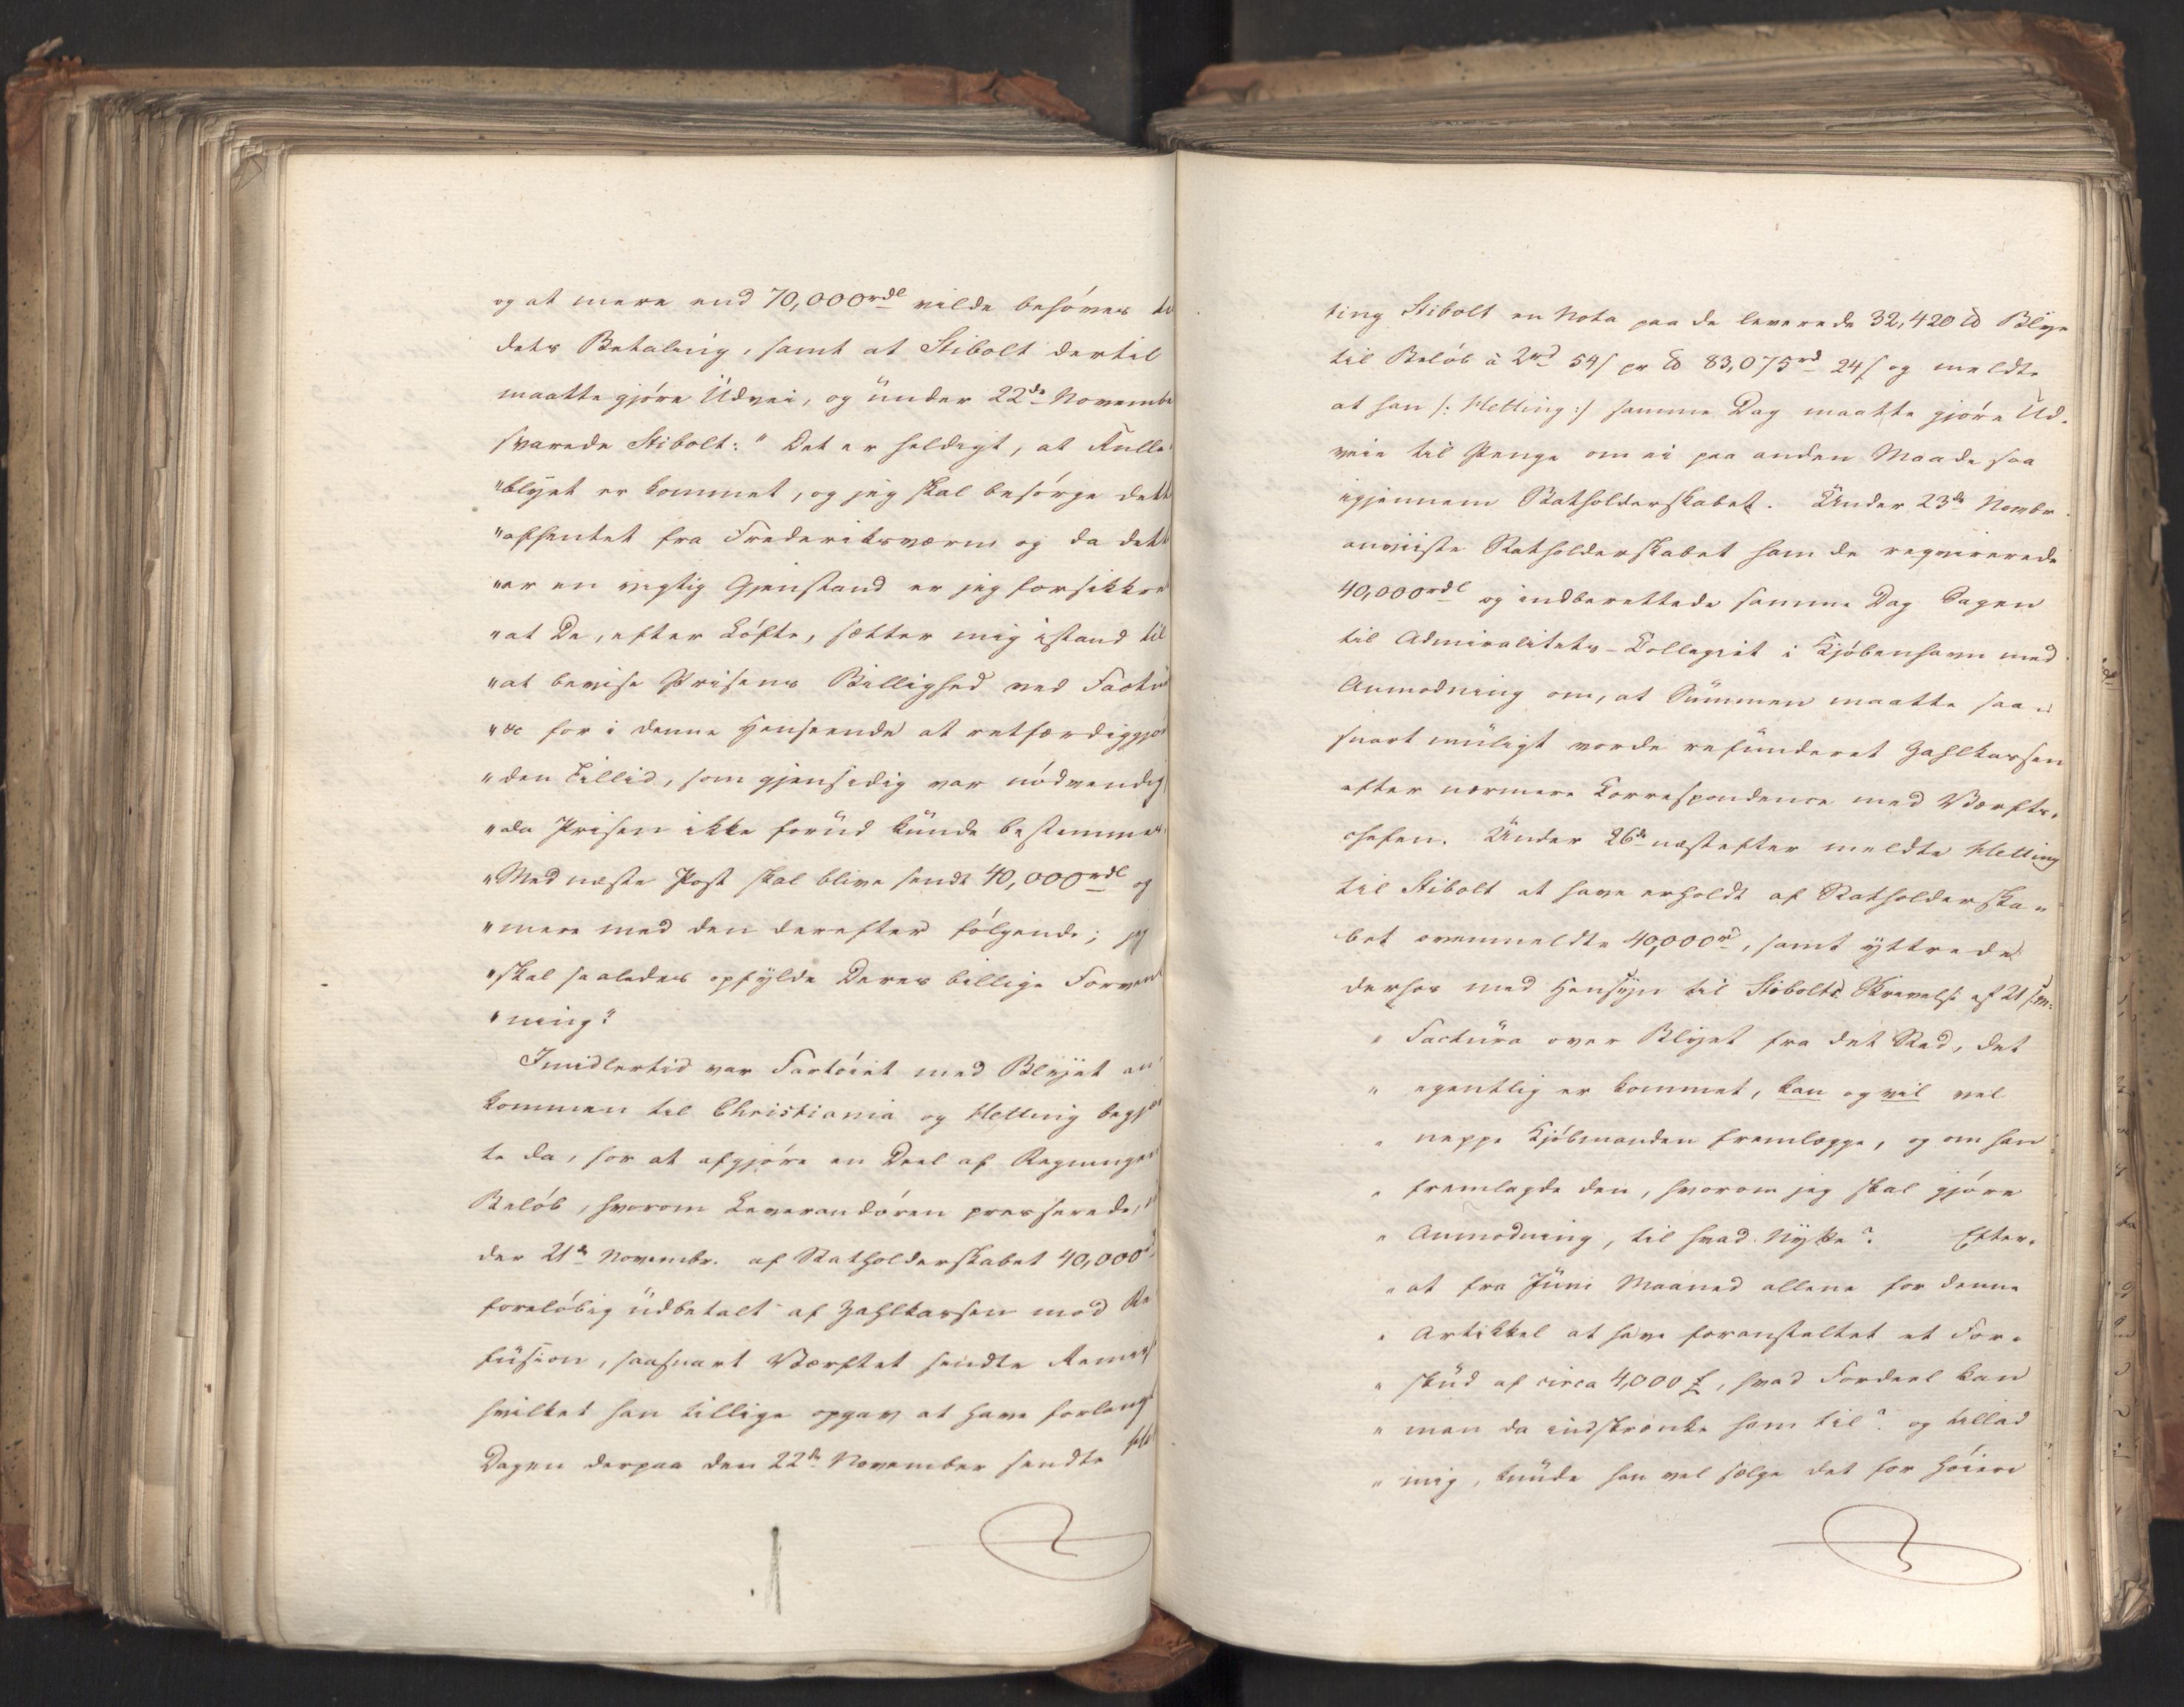 og at mere end 70,000rdl vilde behøves
dets Betaling, samt at Stibolt dertil
maatte gjøre Udvei, og under 22de Novembe
svarede Stibolt: "Det er heldigt, at Rulle
"blyet er kommet, og jeg skal besørge dett
"afhentet fra Frederiksværn og da dett
"er en vigtig Gjenstand er jeg forsikkre
"at De, efter Løfte, sætter mig istand til
"at bevise Prisens Billighed ved Factu
"&c for i denne Henseende at retfærdiggjø
"den Tillid, som gjensidig var nødvendig
"da Prisen ikke forud kunde bestemmes.
"Med næste Post skal blive sendt 40,000rdl og
"mere med den derefter følgende; jeg
"skal saaledes opfylde Deres billige Forvent
"ning"
Imidlertid var Fartøiet med Blyet an
kommen til Christiania og Hetting begjær
te da, for at afgjøre en Deel af Regningens
Beløb, hvorom Leverandøren presserede,
der 21de Novembr. af Statholderskabet 40,000
foreløbig udbetalt af Zahlkassen mod Re
fusion, saasnart Værftet sendte
hvilket han tillige opgav at have forlangt
Dagen derpaa den 22de November sendte Het
ting Stibolt en Nota paa de leverede 32,420 ℔ Blye
til Beløb à 2rd 54 s pr ℔ 83,075rd 24 s og meldte
at han /: Hetting :/ samme Dag maatte gjøre Ud-
veie til Penge om ei paa anden Maade saa
igjennem Statholderskabet. Under 23de Novbr.
anviiste Statholderskabet ham de reqvirerede
40,000rdl og indberettede samme Dag Sagen
til Admiralitets-Collegiet i Kjøbenhavn med
Anmodning om, at Summen maatte saa-
snart muligt vorde refunderet Zahlkassen
efter nærmere Correspondence med Værfts-
chefen. Under 26de næstefter meldte Hetting
til Stibolt at have erholdt af Statholderska-
bet ovenmeldte 40,000rd, samt yttrede
derhos med Hensyn til Stibolts Skrivelse af 21
" Factura over Blyet fra det Sted, det
" egentlig er kommet, kan og vil vel
" neppe Kjøbmanden fremlægge, og om han
" fremlagde den, hvorom jeg skal gjøre
" Anmodning, til hvad Nytte? Efter-
" at fra Juni Maaned allene for denne
" Artikkel at have foranstaltet et For-
" skud af circa 4,000 £, hvad Fordeel kan
" man da indskrænke ham til? og tillad
" mig, kunde han vel sælge det for høiere